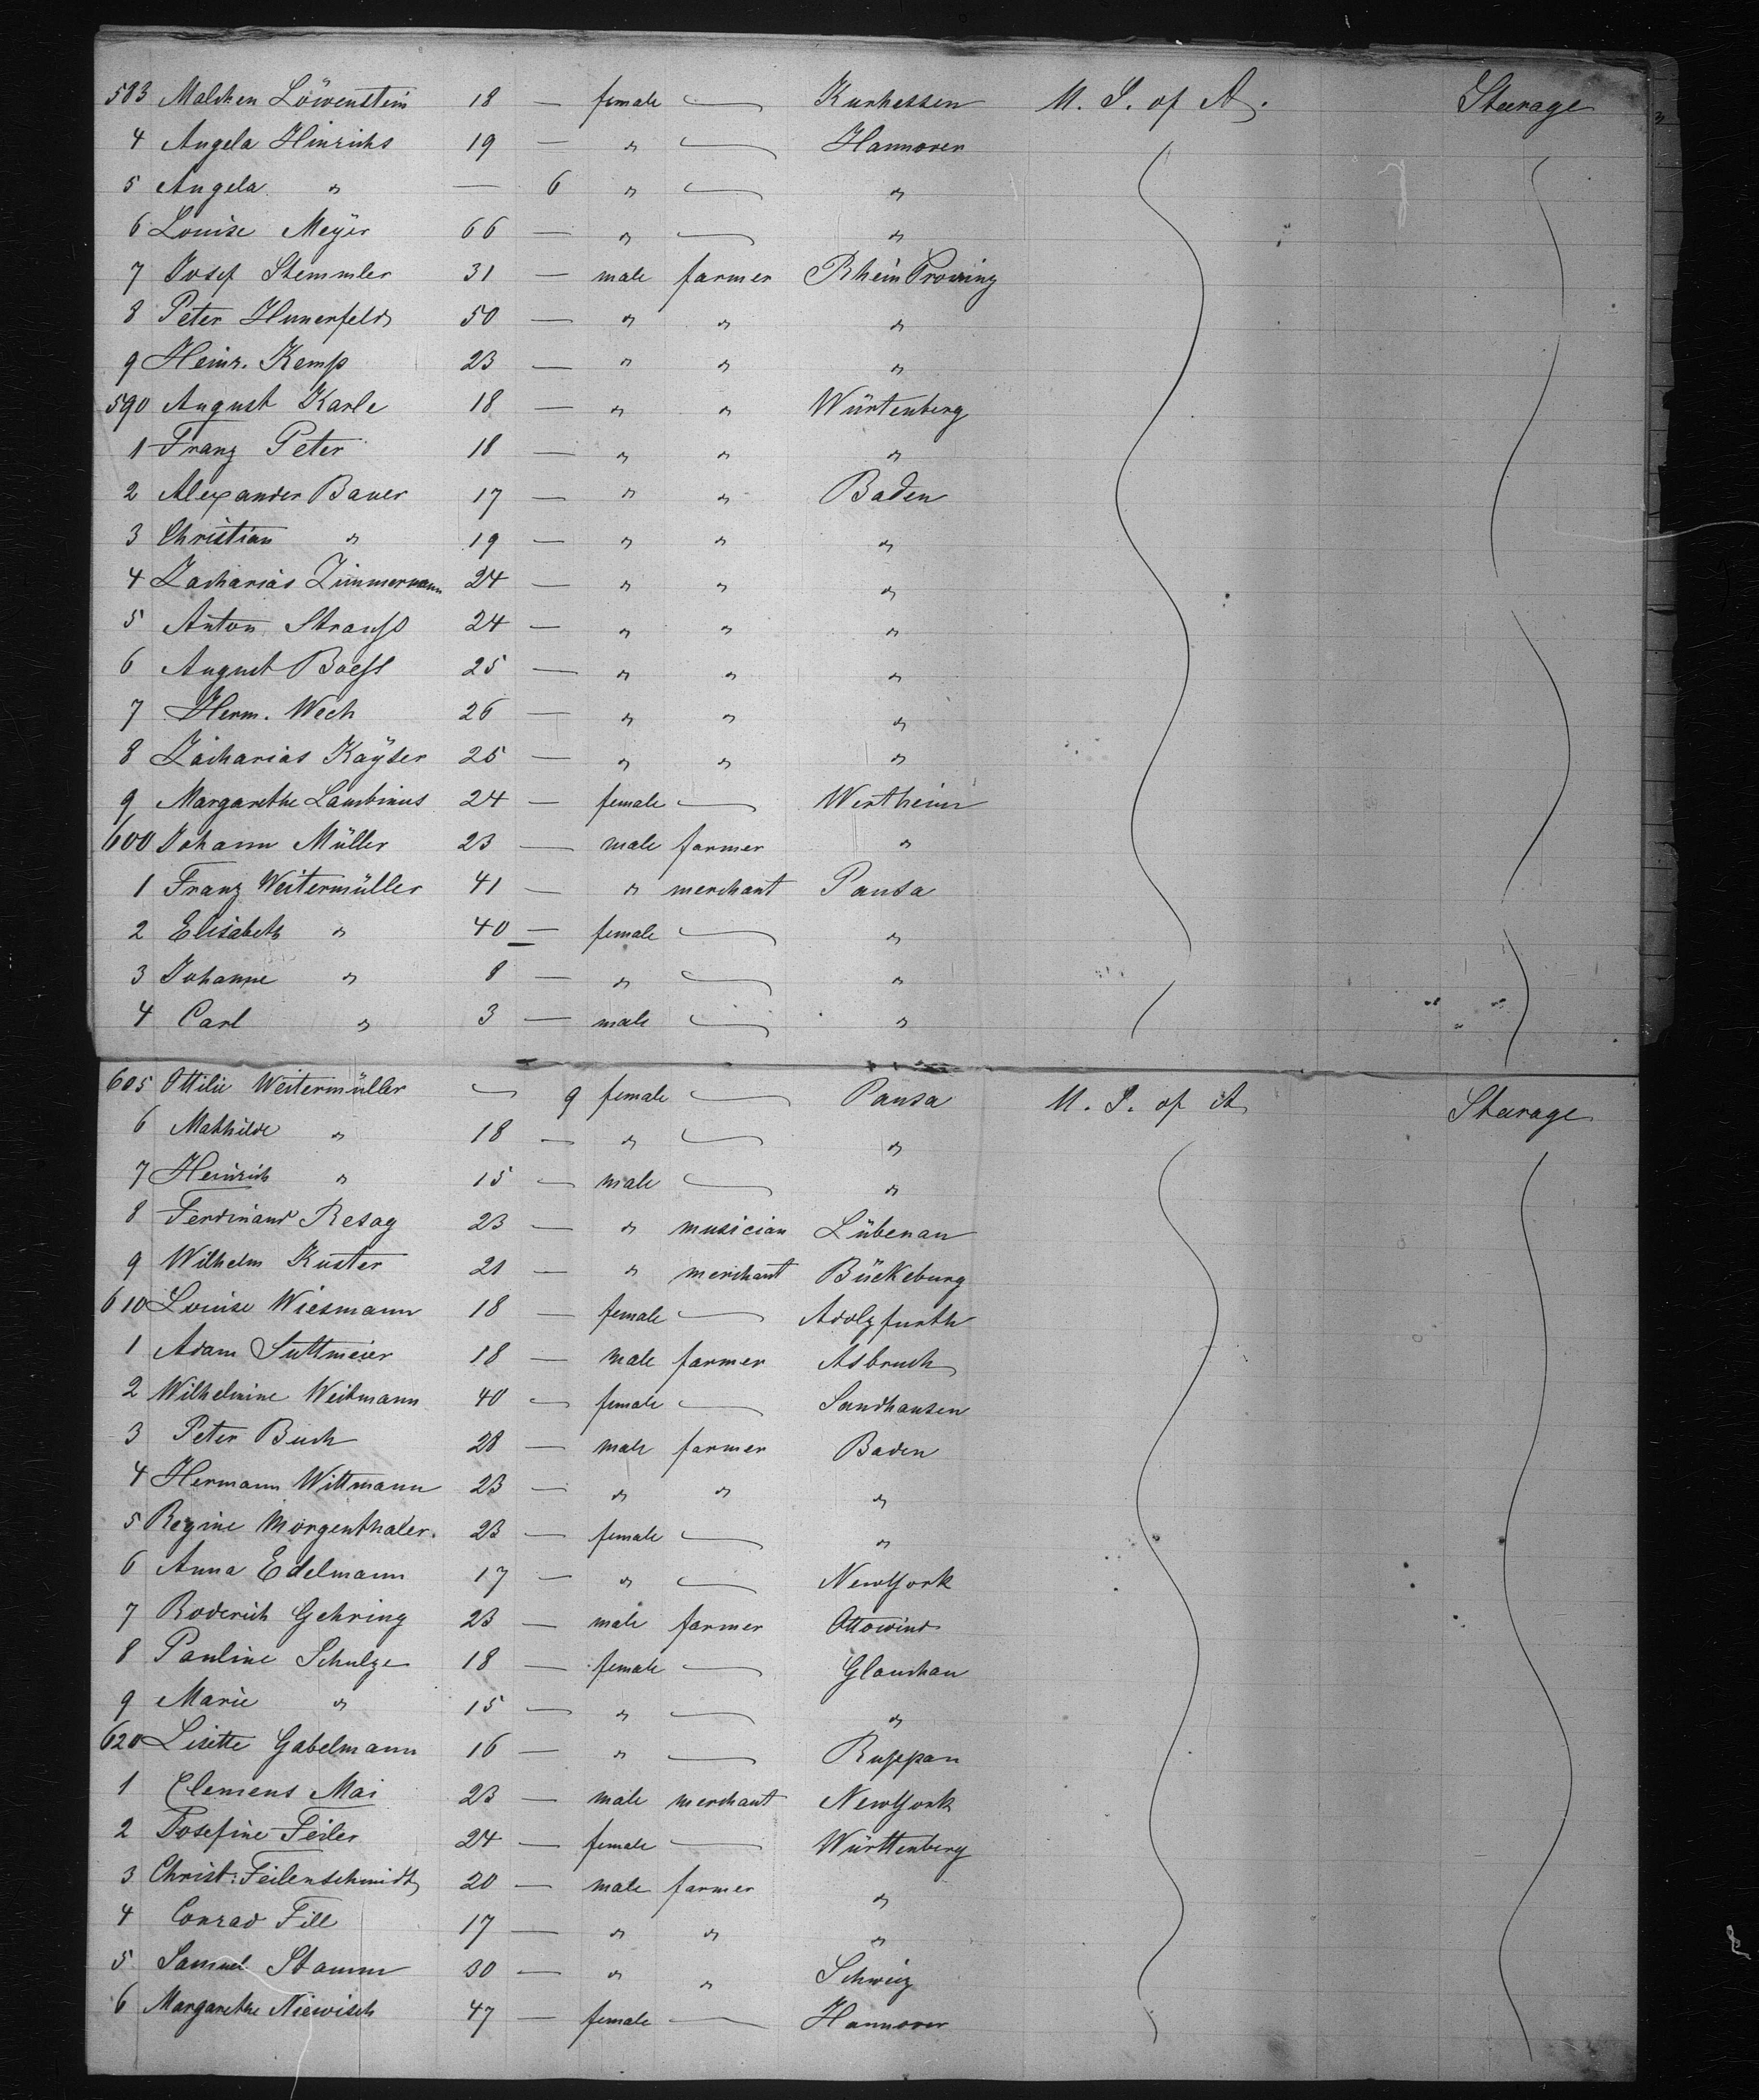 583 Malchen Löwenstein 18 — female — Kurhessen U. S. of A. Steerage
4 Angela Hinrichs 19 — " — Hannover
5 Angela " — 6 " — "
6 Louise Meyer 66 — " — "
7 Josef Stemmler 31 — male farmer Rhein Provinz
8 Peter Hunerfeld 50 — " " "
9 Heinr. Kemp 23 — " " "
590 August Karle 18 — " " Würtenberg
1 Franz Peter 18 — " " "
2 Alexander Bauer 17 — " " Baden
3 Christian " 19 — " " "
4 Zacharias Zimmermann 24 — " " "
5 Anton Strauß 24 — " " "
6 August 25 — " " "
7 Herm. Wech 26 — " " "
8 Zacharias Kayser 25 — " " "
9 Margarethe Lambinus 24 — female — Wertheim
600 Johann Müller 23 — male farmer "
1 Franz Weitermüller 41 — " merchant Pausa
2 Elisabeth " 40 — female — "
3 Johanne " 8 — " — "
4 Carl " 3 — male — "
605 Ottilie Weitermüller — 9 female — Pausa U. S. of A Steerage
6 Mathilde " 18 — " — "
7 Heinrich " 15 — male — "
8 Ferdinand Resag 23 — " musician Lübenau
9 Wilhelm Kuster 21 — " merchant Bückeburg
610 Louise Wiesmann 18 — female — Adolzfurth
1 Adam Suttmeier 18 — male farmer Asbruch
2 Wilhelmine Weitmann 40 — female — Sandhausen
3 Peter Buch 28 — male farmer Baden
4 Hermann Wittmann 23 — " " "
5 Regine Morgenthaler. 23 — female — "
6 Anna Edelmann 17 — " — NewYork
7 Roderich Gehring 23 — male farmer Ottowind
8 Pauline Schulze 18 — female — Glauchau
9 Marie " 15 — " — "
620 Lisette Gabelmann 16 — " — Ruppau
1 Clemens Mai 23 — male merchant NewYork
2 Josefine Feiler 24 — female — Württenberg
3 Christ: Feilenschmidt 20 — male farmer "
4 Conrad Fill 17 — " " "
5 Samuel Stamm 30 — " " Schweiz
6 Margarethe Niewisch 47 — female — Hannover